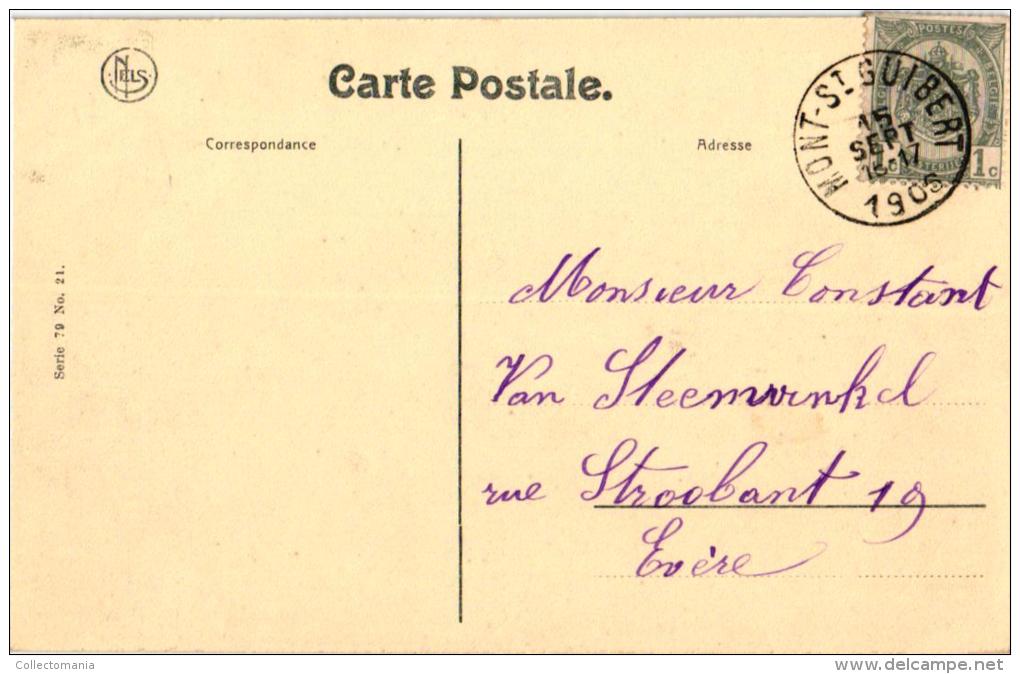 NELS
Carte Postale.
POSTES
Correspondance
Adresse
MONT-ST GUIBERT
15
SEPT
16-17
1906
1c
Serie 79 No. 21.
Monsieur Constant
Van Steenwinkel
rue Stroobant 19
Evère
Collectomania
www.delcampe.net